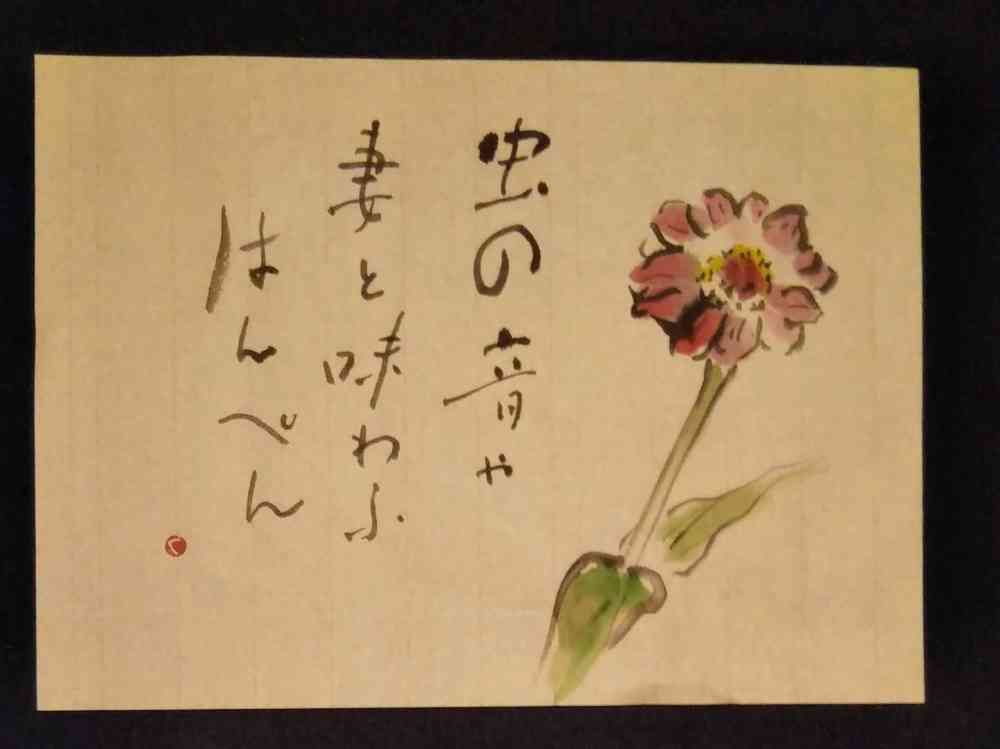 虫の音や
妻と味わふ
はんぺん
く